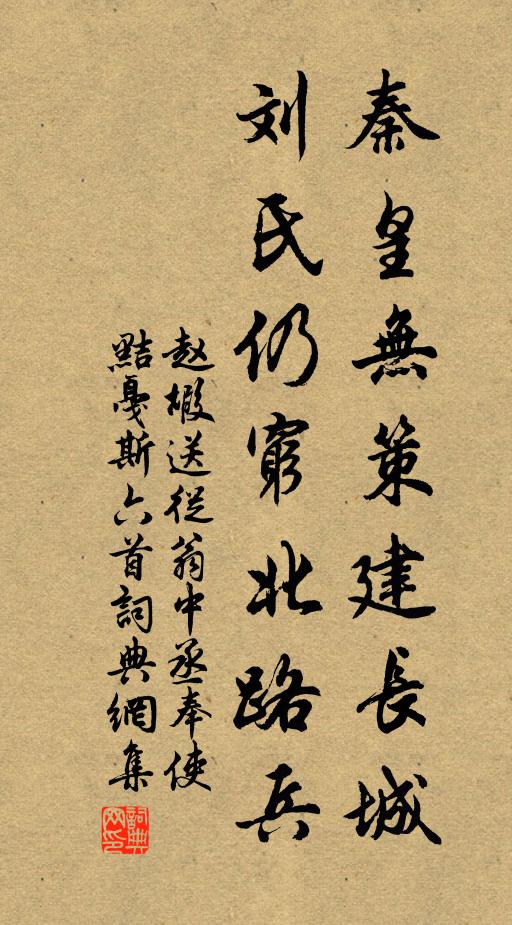 秦皇無策建長城
刘氏仍窮北路兵
赵嘏送從翁中丞奉使
黠戛斯六首詞典網集
詞典网印